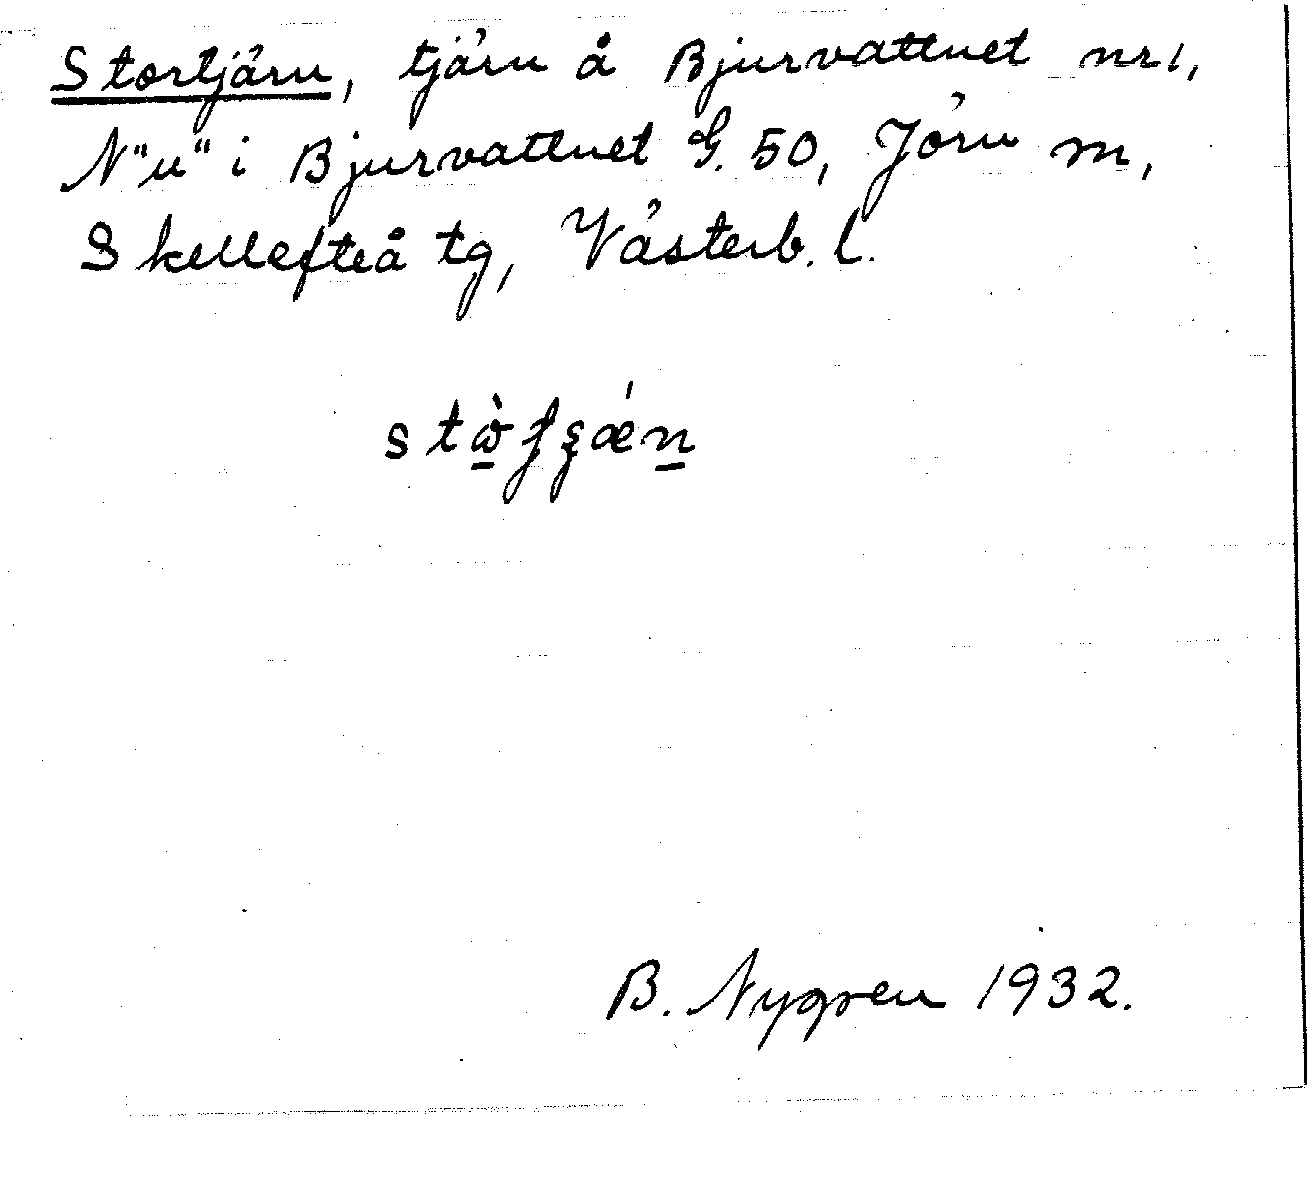 Stortjärn, tjärn å Bjurvattnet nr 1,
N "u" i Bjurvattnet G. 50, Jörn m,
Skellefteå tg, Västerb. l.
B. Nygren 1932.